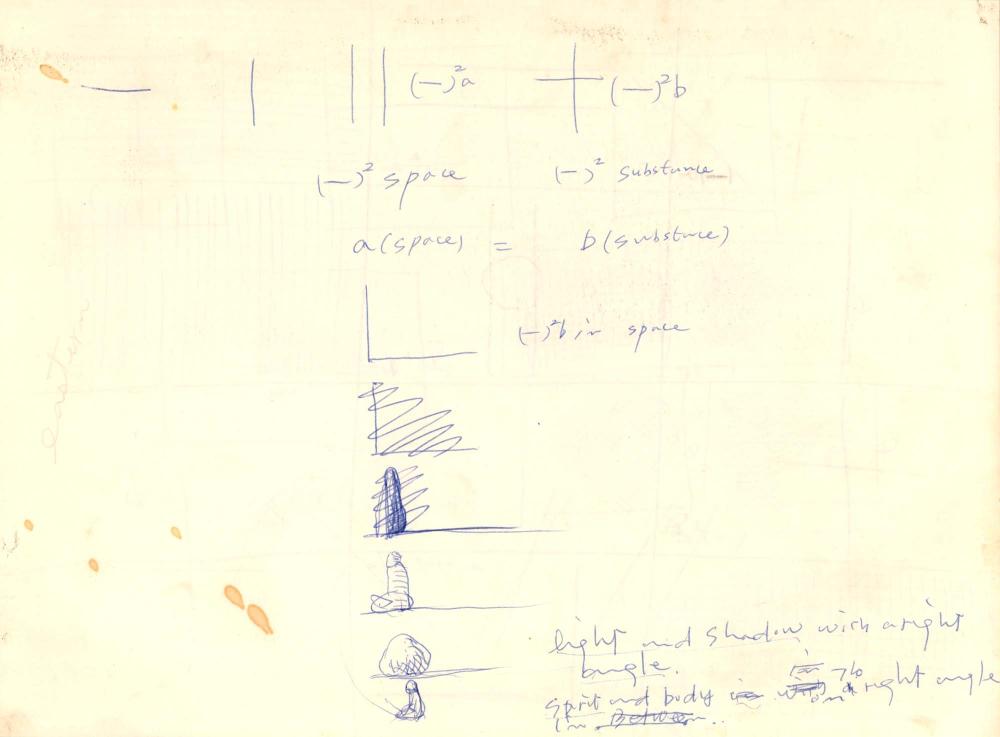 (—)²a (—)²b
(—)² space (—)² substance
a(space) = b(substance)
(—)²b in space
eastern
light and shadow with a right
angle.
spirit and body in right angle